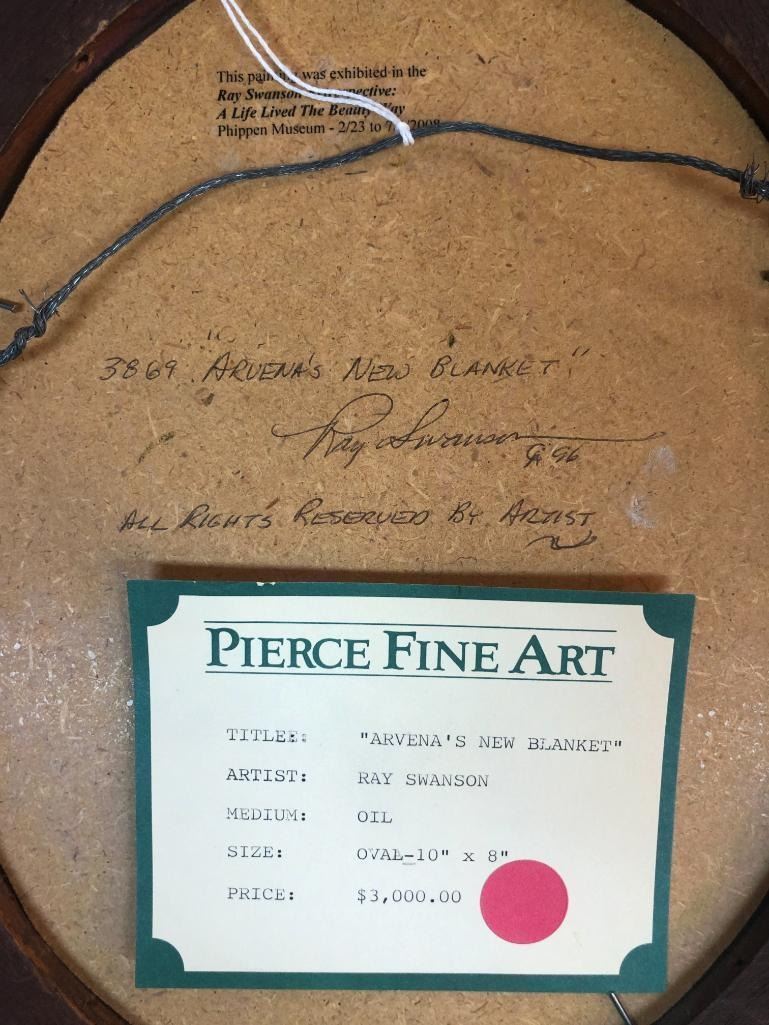 This painting was exhibited in the
Ray Swanson Retrospective:
A Life Lived The Beauty Way
Phippen Museum - 2/23 to 2008
3869 "ARVENA'S NEW BLANKET"
Ray Swanson 96
ALL RIGHTS RESERVED BY ARTIST
PIERCE FINE ART
TITLEE: "ARVENA'S NEW BLANKET"
ARTIST: RAY SWANSON
MEDIUM: OIL
SIZE: OVAL-10" x 8"
PRICE: $3,000.00